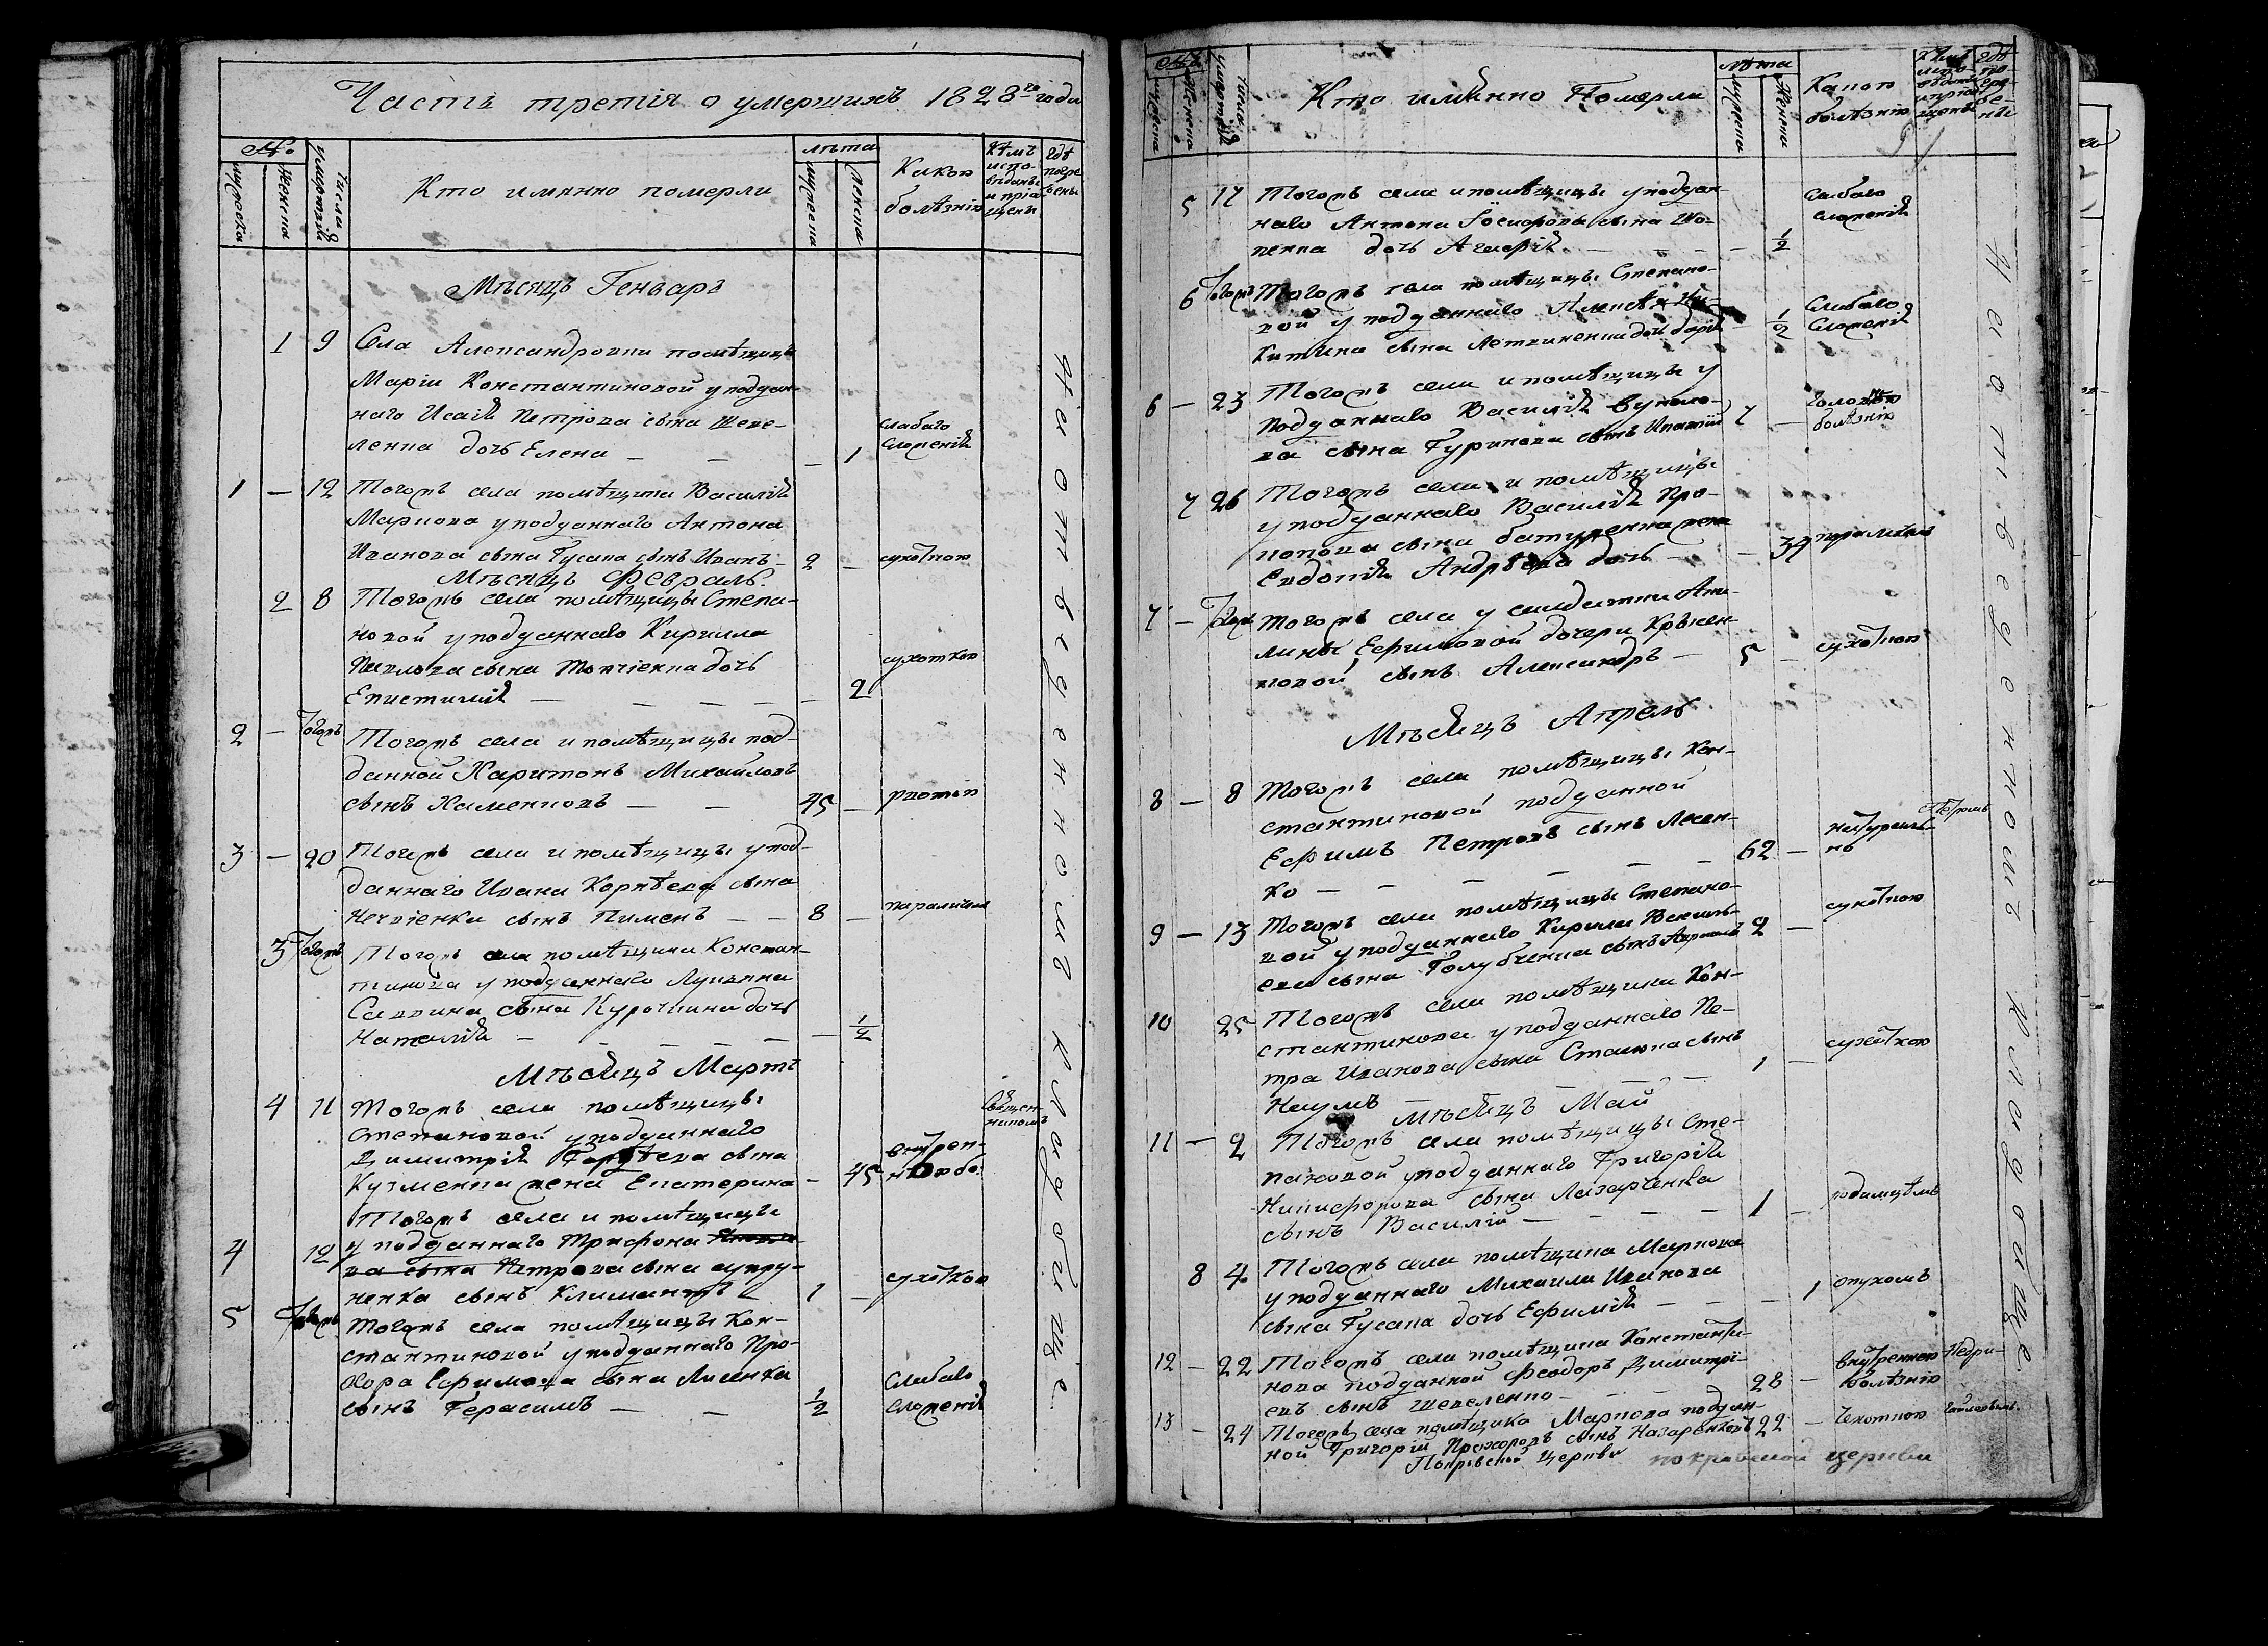 Часть третія о умершихъ 1828го года
№
мужеска
женска
Числа умертвій
Кто именно померли
лѣта
мужеска
женска
Какою болѣзнію
Кѣмъ испо-
вѣданы
и пріоб-
щены
Гдѣ
погре
бены
Мѣсяцъ Генварь
1 9 Села Александровки помѣщицы
Маріи Константиновой у поддан-
наго Исаія Петрова сына Шеве-
ленка дочь Елена — — — 1 слабаго сложенія
1 — 12 Тогожъ села помѣщика Василія
Маркова у подданнаго Антона
Иванова сына Гусака сынъ Иванъ - 2 — сухоткою
Мѣсяцъ Февраль.
2 8 Тогожъ села помѣщицы Степа-
новой у подданнаго Кирилла
Павлова сына Топчіенка дочь
Епистимія — — — — 2 сухоткою
2 — Тогожъ Тогожъ села и помѣщицы под-
данной Харитонъ Михайловъ
сынъ Хаменковъ — — 45 — рвотою
3 — 20 Тогожъ села и помѣщицы у под-
даннаго Ивана Корнѣева сына
Нечвіенка сынъ Пименъ — — 8 — параличемъ
3 Тогожъ Тогожъ села помѣщика Констан-
тинова у подданнаго Лукьяна
Саввина сына Курочкина дочь
Наталія — — — — — 1/2
Мѣсяцъ Мартъ
4 11 Тогожъ села помѣщицы
Степановой у подданнаго
Димитрія сына
Кузменка жена Екатерина — 45 внутрен- Священ-
никомъ
Тогожъ села и помѣщицы
4 12 у подданнаго Трифона
ва сына Петрова сына супру-
ненка сынъ Климантъ 1 — сухоткою
5 Тогожъ Тогожъ села помѣщицы Кон-
стантиновой у подданнаго Про-
хора Ефимова сына Лисенка
сынъ Герасимъ — — 1/2 Слабаго сложенія
Неотведенномъ кладбище
№
мужеска
женска
Числа умертвій
Кто именно Померли
лѣта
мужеска
женска
Какою
болѣзнію
Кѣмъ
испо-
вѣданы
и пріоб-
щены
Гдѣ
по-
гре-
бе-
ны
5 17 Тогожъ села и помѣщицы у поддан-
наго Антона Іосифова сына
дочь Агафія — — — 1/2 слабаго сложенія
6 Тогожъ Тогожъ села помѣщицы Степано-
вой у подданнаго
Китина сына Литвиненка дочь Дарія — 1/2 Слабаго Сложенія
6 — 23 Тогожъ села и помѣщицы у
подданнаго Василія Вуколо-
ва сына Гурикова сынъ Ипатій 7 — головною болѣзнію
7 26 Тогожъ села и помѣщицы
у подданнаго Василія Про-
копова сына Батуренка жена
Евдокія Андрѣева дочь — — 37 параличемъ
7 — Тогожъ Тогожъ села у солдатки Аки-
лины Ефимовой дочери
сынъ Александръ — 5 — сухоткою
Мѣсяцъ Апрель
8 — 8 Тогожъ села помѣщицы Кон-
стантиновой подданной
Ефимъ Петровъ сынъ Лисен-
ко — — — — — 62 — натураль-
но
9 — 13 Тогожъ села помѣщицы Степано-
вой у подданнаго Кирила Василь-
ева сына Голубченка сынъ 2 — сухоткою
10 25 Тогожъ села помѣщика Кон-
стантинова у подданнаго Пе-
тра Иванова сына Стаюка сынъ
Наумъ — — — — 1 — сухоткою
Мѣсяцъ Май
11 — 2 Тогожъ села помѣщицы Сте-
пановой у подданнаго Григорія
Никифорова сына Лазаренка
сынъ Василій — — — — 1 — родимцѣмъ
8 4 Тогожъ села помѣщика Маркова
у подданнаго Михаила Иванова
сына Гусака дочь Ефимія — — — 1 опухомъ
12 — 22 Тогожъ села помѣщика Константи-
нова подданной Феодоръ Димитрі-
евъ сынъ Шевеленко — — — 28 — внутреннею болѣзнію
13 — 24 Тогожъ села помѣщика Маркова поддан-
ной Григорій Прохоровъ сынъ Назаренковъ 22 — Чехоткою
Покровской Церкви покровской церкви
Неотведенномъ кладбище